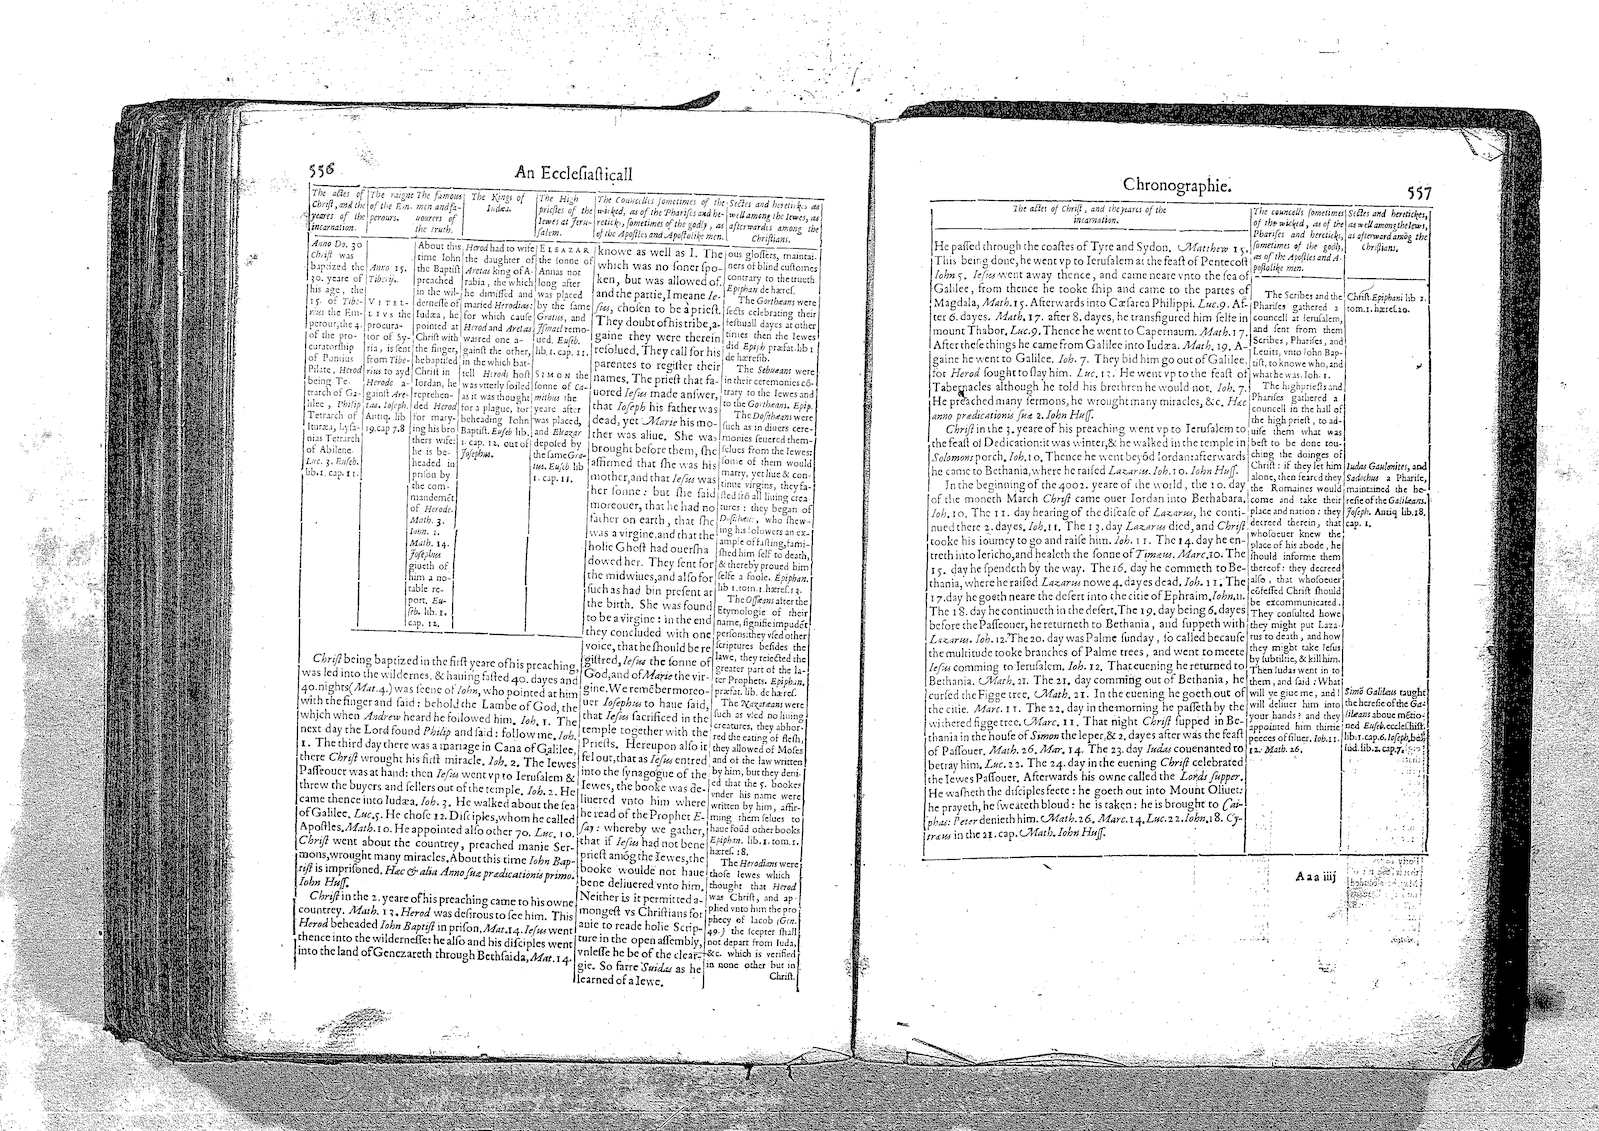 556
An Ecclesiasticall
The actes of
Christ, and the
yeares of the
incarnation.
Anno Do. 30
Christ was
baptized the
30. yeare of
his age, the
15. of Tibe-
rius the Em-
perour, the 4.
of the pro-
curatorship
of Pontius
Pilate, Herod
being Te-
trarch of Ga-
lilee, Philip
Tetrarch of
Ituræa, Lysa-
nias Tetrarch
of Abilene.
Luc. 3. Euseb.
lib. 1. cap. 11.
The raigne
of the Em-
perours.
Anno 15.
Tiberij.
VITEL-
LIVS the
procura-
tor of Sy-
ria, is sent
from Tibe-
rius to ayd
Herode a-
gainst Are-
tas. Ioseph.
Antiq. lib
19. cap 7.8
The famous
men and fa-
uourers of
the truth.
About this
time Iohn
the Baptist
preached
in the wil-
dernesse of
Iudæa, he
pointed at
Christ with
the finger,
he baptised
Christ in
Iordan, he
reprehen-
ded Herod
for mary-
ing his bro
thers wife:
he is be-
headed in
prison by
the com-
mandemēt
of Herode.
Math. 3.
Iohn. 1.
Math. 14.
Iosephus
giueth of
him a no-
table re-
port. Eu-
seb. lib. 1.
cap. 12.
The Kings of
Iudæa.
Herod had to wife
the daughter of
Aretas king of A-
rabia, the which
he dimissed and
maried Herodias:
for which cause
Herod and Aretas
warred one a-
gainst the other,
in the which bat-
tell Herods host
was vtterly foiled
as it was thought
for a plague, for
beheading Iohn
Baptist. Euseb lib.
1. cap. 12. out of
Iosephus.
The High
priestes of the
Iewes at Ieru-
salem.
ELEAZAR
the sonne of
Annas not
long after
was placed
by the same
Gratus, and
Ismael remo-
ued. Euseb.
lib. 1. cap. 11.
SIMON the
sonne of Ca-
mithus the
yeare after
was placed,
and Eleazar
deposed by
the same Gra-
tus. Euseb. lib
1. cap. 11.
Christ being baptized in the first yeare of his preaching,
was led into the wildernes, & hauing fasted 40. dayes and
40. nights (Mat. 4.) was seene of Iohn, who pointed at him
with the finger and said: behold the Lambe of God, the
which when Andrew heard he followed him. Ioh. 1. The
next day the Lord found Philip and said: follow me. Ioh.
1. The third day there was a mariage in Cana of Galilee,
there Christ wrought his first miracle. Ioh. 2. The Iewes
Passeouer was at hand: then Iesus went vp to Ierusalem &
threw the buyers and sellers out of the temple. Ioh. 2. He
came thence into Iudæa. Ioh. 3. He walked about the sea
of Galilee. Luc. 5. He chose 12. Disciples, whom he called
Apostles. Math. 10. He appointed also other 70. Luc. 10.
Christ went about the countrey, preached manie Ser-
mons, wrought many miracles. About this time Iohn Bap-
tist is imprisoned. Hæc & alia Anno suæ prædicationis primo.
Iohn Huss.
Christ in the 2. yeare of his preaching came to his owne
countrey. Math. 13. Herod was desirous to see him. This
Herod beheaded Iohn Baptist in prison, Mat. 14. Iesus went
thence into the wildernesse: he also and his disciples went
into the land of Genezareth through Bethsaida, Mat. 14.
The Councelles sometimes of the
wicked, as of the Pharises and he-
reticks, sometimes of the godly, as
of the Apostles and Apostolike men.
knowe as well as I. The
which was no soner spo-
ken, but was allowed of,
and the partie, I meane Ie-
sus, chosen to be a priest.
They doubt of his tribe, a-
gaine they were therein
resolued. They call for his
parentes to register their
names. The priest that fa-
uored Iesus made answer,
that Ioseph his father was
dead, yet Marie his mo-
ther was aliue. She was
brought before them, she
affirmed that she was his
mother, and that Iesus was
her sonne: but she said
moreouer, that he had no
father on earth, that she
was a virgine, and that the
holie Ghost had ouersha
dowed her. They sent for
the midwiues, and also for
such as had bin present at
the birth. She was found
to be a virgine: in the end
they concluded with one
voice, that he should be re
gistred, Iesus the sonne of
God, and of Marie the vir-
gine. We remēber moreo-
uer Iosephus to haue said,
that Iesus sacrificed in the
temple together with the
Priests. Hereupon also it
fel out, that as Iesus entred
into the synagogue of the
Iewes, the booke was de-
liuered vnto him where
he read of the Prophet E-
say: whereby we gather,
that if Iesus had not bene
priest amōg the Iewes, the
booke woulde not haue
bene deliuered vnto him.
Neither is it permitted a-
mongest vs Christians for
anie to reade holie Scrip-
ture in the open assembly,
vnlesse he be of the clear-
gie. So farre Suidas as he
learned of a Iewe.
Sectes and heretickes as
well among the Iewes, as
afterwardes among the
Christians.
ous glossers, maintai-
ners of blind customes
contrary to the trueth
Epiphan de hæres.
The Gortheans were
sects celebrating their
festiuall dayes at other
times then the Iewes
did Epiph præfat. lib 1
de hæresib.
The Sebueans were
in their ceremonies cō-
trary to the Iewes and
to the Gortheans. Epip.
The Dositheans were
such as in diuers cere-
monies seuered them-
selues from the Iewes:
some of them would
marry, yet liue & con-
tinue virgins, they fa-
sted frō all liuing crea-
tures: they began of
Dositheus, who shew-
ing his folowers an ex-
ample of fasting, fami-
shed him self to death,
& thereby proued him
selfe a foole. Epiphan.
lib 1. tom 1. hæres. 13.
The Osseans after the
Etymologie of their
name, signifie impudēt
persons: they vsed other
scriptures besides the
lawe, they reiected the
greater part of the la-
ter Prophets. Epiphan.
præfat. lib. de hæres.
The Nazaræans were
such as vsed no liuing
creatures, they abhor-
red the eating of flesh,
they allowed of Moses
and of the law written
by him, but they deni-
ed that the 5. bookes
vnder his name were
written by him, affir-
ming them selues to
haue foūd other books
Epiphan. lib. 1. tom. 1.
hæres. 18.
The Herodians were
those Iewes which
thought that Herod
was Christ, and ap-
plied vnto him the pro
phecy of Iacob (Gen.
49.) the scepter shall
not depart from Iuda,
&c. which is verified
in none other but in
Christ.
Chronographie.
557
The actes of Christ, and the yeares of the
incarnation.
He passed through the coastes of Tyre and Sydon. Matthew 15.
This being done, he went vp to Ierusalem at the feast of Pentecost
Iohn 5. Iesus went away thence, and came neare vnto the sea of
Galilee, from thence he tooke ship and came to the partes of
Magdala, Math. 15. Afterwards into Cæsarea Philippi. Luc. 9. Af-
ter 6. dayes. Math. 17. after 8. dayes, he transfigured him selfe in
mount Thabor, Luc. 9. Thence he went to Capernaum. Math. 17.
After these things he came from Galilee into Iudæa. Math. 19. A-
gaine he went to Galilee. Ioh. 7. They bid him go out of Galilee,
for Herod sought to slay him. Luc. 13. He went vp to the feast of
Tabernacles although he told his brethren he would not. Ioh. 7.
He preached many sermons, he wrought many miracles, &c. Hæc
anno prædicationis suæ 2. Iohn Huss.
Christ in the 3. yeare of his preaching went vp to Ierusalem to
the feast of Dedication: it was winter, & he walked in the temple in
Solomons porch. Ioh. 10. Thence he went beyōd Iordan: afterwards
he came to Bethania, where he raised Lazarus. Ioh. 10. Iohn Huss.
In the beginning of the 4002. yeare of the world, the 10. day
of the moneth March Christ came ouer Iordan into Bethabara,
Ioh. 10. The 11. day hearing of the disease of Lazarus, he conti-
nued there 2. dayes. Ioh. 11. The 13. day Lazarus died, and Christ
tooke his iourney to go and raise him. Ioh. 11. The 14. day he en-
treth into Iericho, and healeth the sonne of Timæus. Marc. 10. The
15. day he spendeth by the way. The 16. day he commeth to Be-
thania, where he raised Lazarus nowe 4. dayes dead. Ioh. 11. The
17. day he goeth neare the desert into the citie of Ephraim. Ioh. 11.
The 18. day he continueth in the desert, The 19. day being 6. dayes
before the Passeouer, he returneth to Bethania, and suppeth with
Lazarus. Ioh. 12. The 20. day was Palme sunday, so called because
the multitude tooke branches of Palme trees, and went to meete
Iesus comming to Ierusalem. Ioh. 12. That euening he returned to
Bethania. Math. 21. The 21. day comming out of Bethania, he
cursed the Figge tree, Math. 21. In the euening he goeth out of
the citie. Marc. 11. The 22. day in the morning he passeth by the
withered figge tree. Marc. 11. That night Christ supped in Be-
thania in the house of Simon the leper, & 2. dayes after was the feast
of Passouer. Math. 26. Mar. 14. The 23. day Iudas couenanted to
betray him. Luc. 22. The 24. day in the euening Christ celebrated
the Iewes Passouer. Afterwards his owne called the Lords supper.
He washeth the disciples feete: he goeth out into Mount Oliuet:
he prayeth, he sweateth bloud: he is taken: he is brought to Cai-
phas: Peter denieth him. Math. 26. Marc. 14. Luc. 22. Iohn. 18. Cy-
træus in the 21. cap. Math. Iohn Huss.
The councells sometimes
of the wicked, as of the
Pharises and heretickes,
sometimes of the godly,
as of the Apostles and A-
postolike men.
The Scribes and the
Pharises gathered a
councell at Ierusalem,
and sent from them
Scribes, Pharises, and
Leuits, vnto Iohn Bap-
tist, to knowe who, and
what he was. Ioh. 1.
The highpriests and
Pharises gathered a
councell in the hall of
the high priest, to ad-
uise them what was
best to be done tou-
ching the doinges of
Christ: if they let him
alone, then feared they
the Romaines would
come and take their
place and nation: they
decreed therein, that
whosoeuer knew the
place of his abode, he
should informe them
thereof: they decreed
also, that whosoeuer
cōfessed Christ should
be excommunicated.
They consulted howe
they might put Laza-
rus to death, and how
they might take Iesus
by subtilitie, & kill him.
Then Iudas went in to
them, and said: What
will ye giue me, and I
will deliuer him into
your hands? and they
appointed him thirtie
peeces of siluer. Ioh. 11.
12. Math. 26.
Sectes and heretickes,
as well among the Iewes,
as afterward amōg the
Christians.
Christ. Epiphani lib 1.
tom. 1. hæres. 20.
Iudas Gaulonites, and
Sadochus a Pharise,
maintained the he-
resie of the Galileans.
Ioseph. Antiq lib. 18.
cap. 1.
Simō Galileus taught
the heresie of the Ga-
lileans aboue mētio-
ned Euseb. eccles. hist.
lib. 1. cap. 6. Ioseph. bell.
Iud. lib. 2. cap. 7.
Aaa iiij